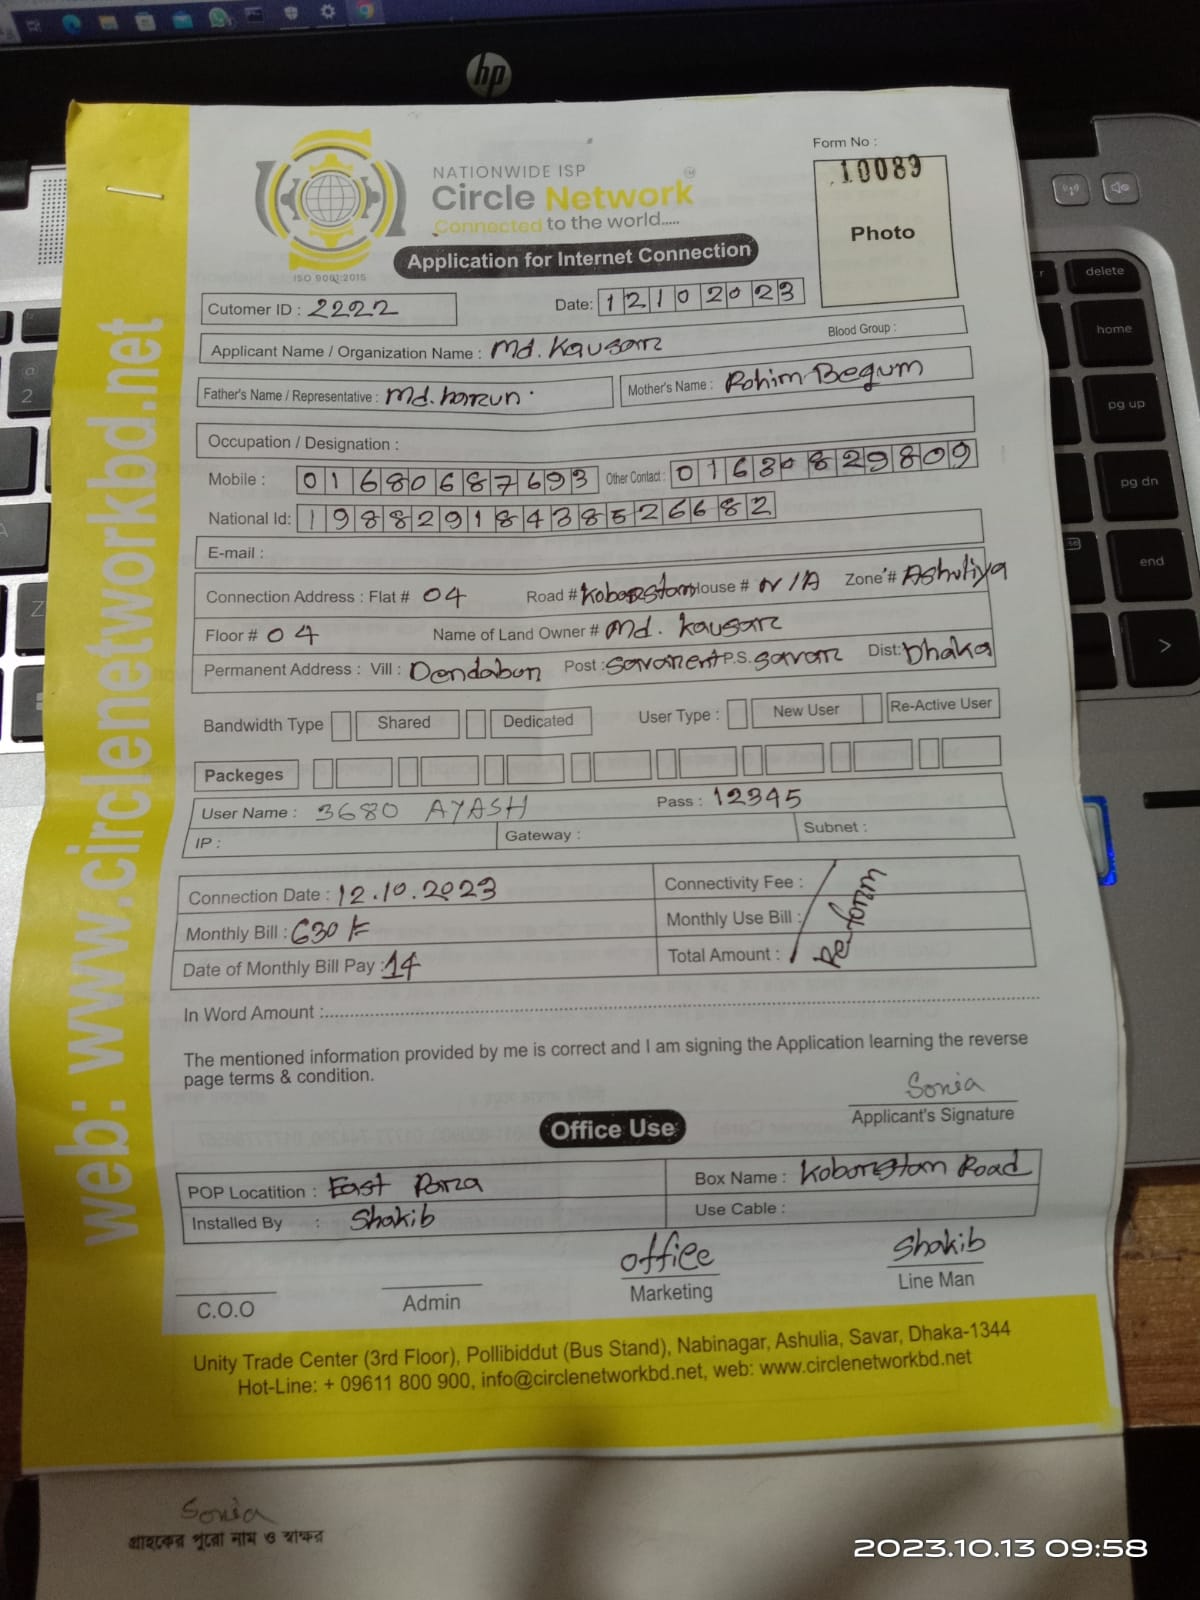 hp
Form No :
10089
Photo
NATIONWIDE ISP
Circle Network
Connected to the world.....
ISO 9001:2015
Application for Internet Connection
Cutomer ID : 2222
Date: 12102023
Applicant Name / Organization Name : Md. Kausar
Blood Group :
Father's Name / Representative : Md. harun
Mother's Name : Rohim Begum
Occupation / Designation :
Mobile : 01680687693 Other Contact : 01630829809
National Id: 19882918438526682
E-mail :
Connection Address : Flat # 04 Road # Koborstan House # N/A Zone # Ashuliya
Floor # 04 Name of Land Owner # Md. Kausar
Permanent Address : Vill : Dendabon Post : Savarent P.S. Savar Dist: Dhaka
Bandwidth Type Shared Dedicated User Type : New User Re-Active User
Packeges
User Name : 3680 AYASH Pass : 12345
IP : Gateway : Subnet :
Connection Date : 12.10.2023 Connectivity Fee :
Monthly Bill : 630 Monthly Use Bill :
Date of Monthly Bill Pay : 14 Total Amount :
Re-form
In Word Amount :
The mentioned information provided by me is correct and I am signing the Application learning the reverse
page terms & condition.
Sonia
Applicant's Signature
Office Use
POP Locatition : East Para Box Name : Koborstan Road
Installed By : Shakib Use Cable :
office Shakib
C.O.O Admin Marketing Line Man
Unity Trade Center (3rd Floor), Pollibiddut (Bus Stand), Nabinagar, Ashulia, Savar, Dhaka-1344
Hot-Line: + 09611 800 900, info@circlenetworkbd.net, web: www.circlenetworkbd.net
web: www.circlenetworkbd.net
Sonia
গ্রাহকের পুরো নাম ও স্বাক্ষর
2023.10.13 09:58
delete
home
pg up
pg dn
end